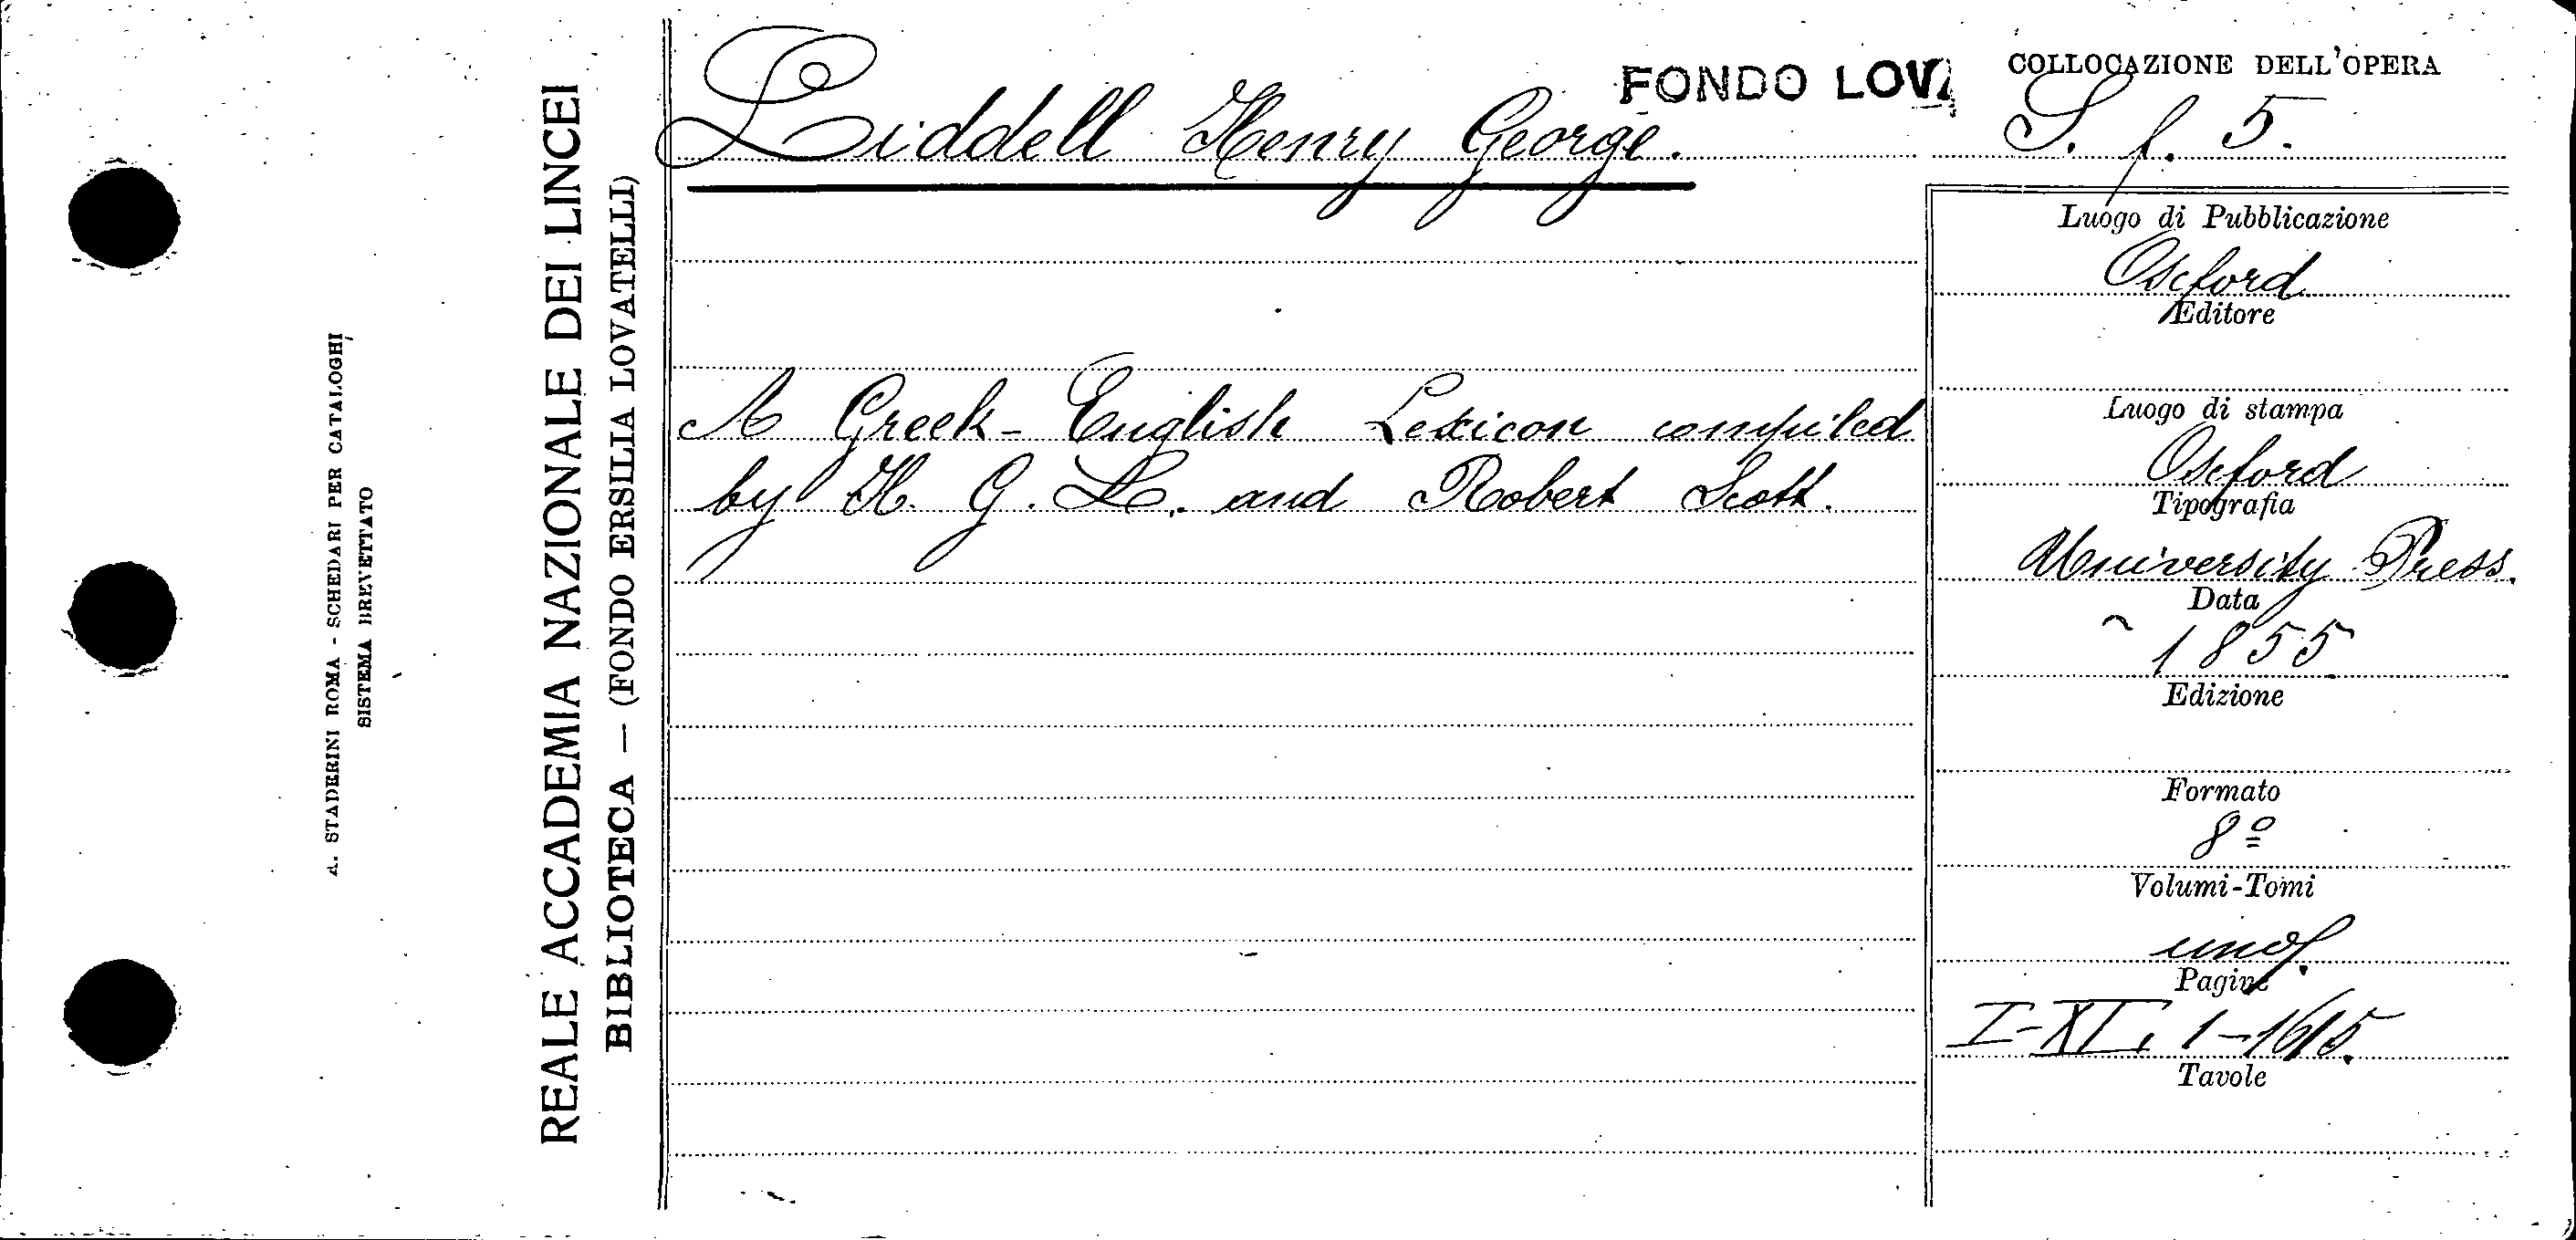 A. STADERINI ROMA - SCHEDARI PER CATALOGHI
SISTEMA BREVETTATO
REALE ACCADEMIA NAZIONALE DEI LINCEI
BIBLIOTECA — (FONDO ERSILIA LOVATELLI)
FONDO LOVA
Liddell Henry George.
A Greek-English Lexicon compiled
by H. G. L. and Robert Scott.
COLLOCAZIONE DELL'OPERA
S. f. 5.
Luogo di Pubblicazione
Oxford
Editore
Luogo di stampa
Oxford
Tipografia
University Press.
Data
1855
Edizione
Formato
8º
Volumi-Tomi
uno
Pagine
I-XI, 1-1615.
Tavole